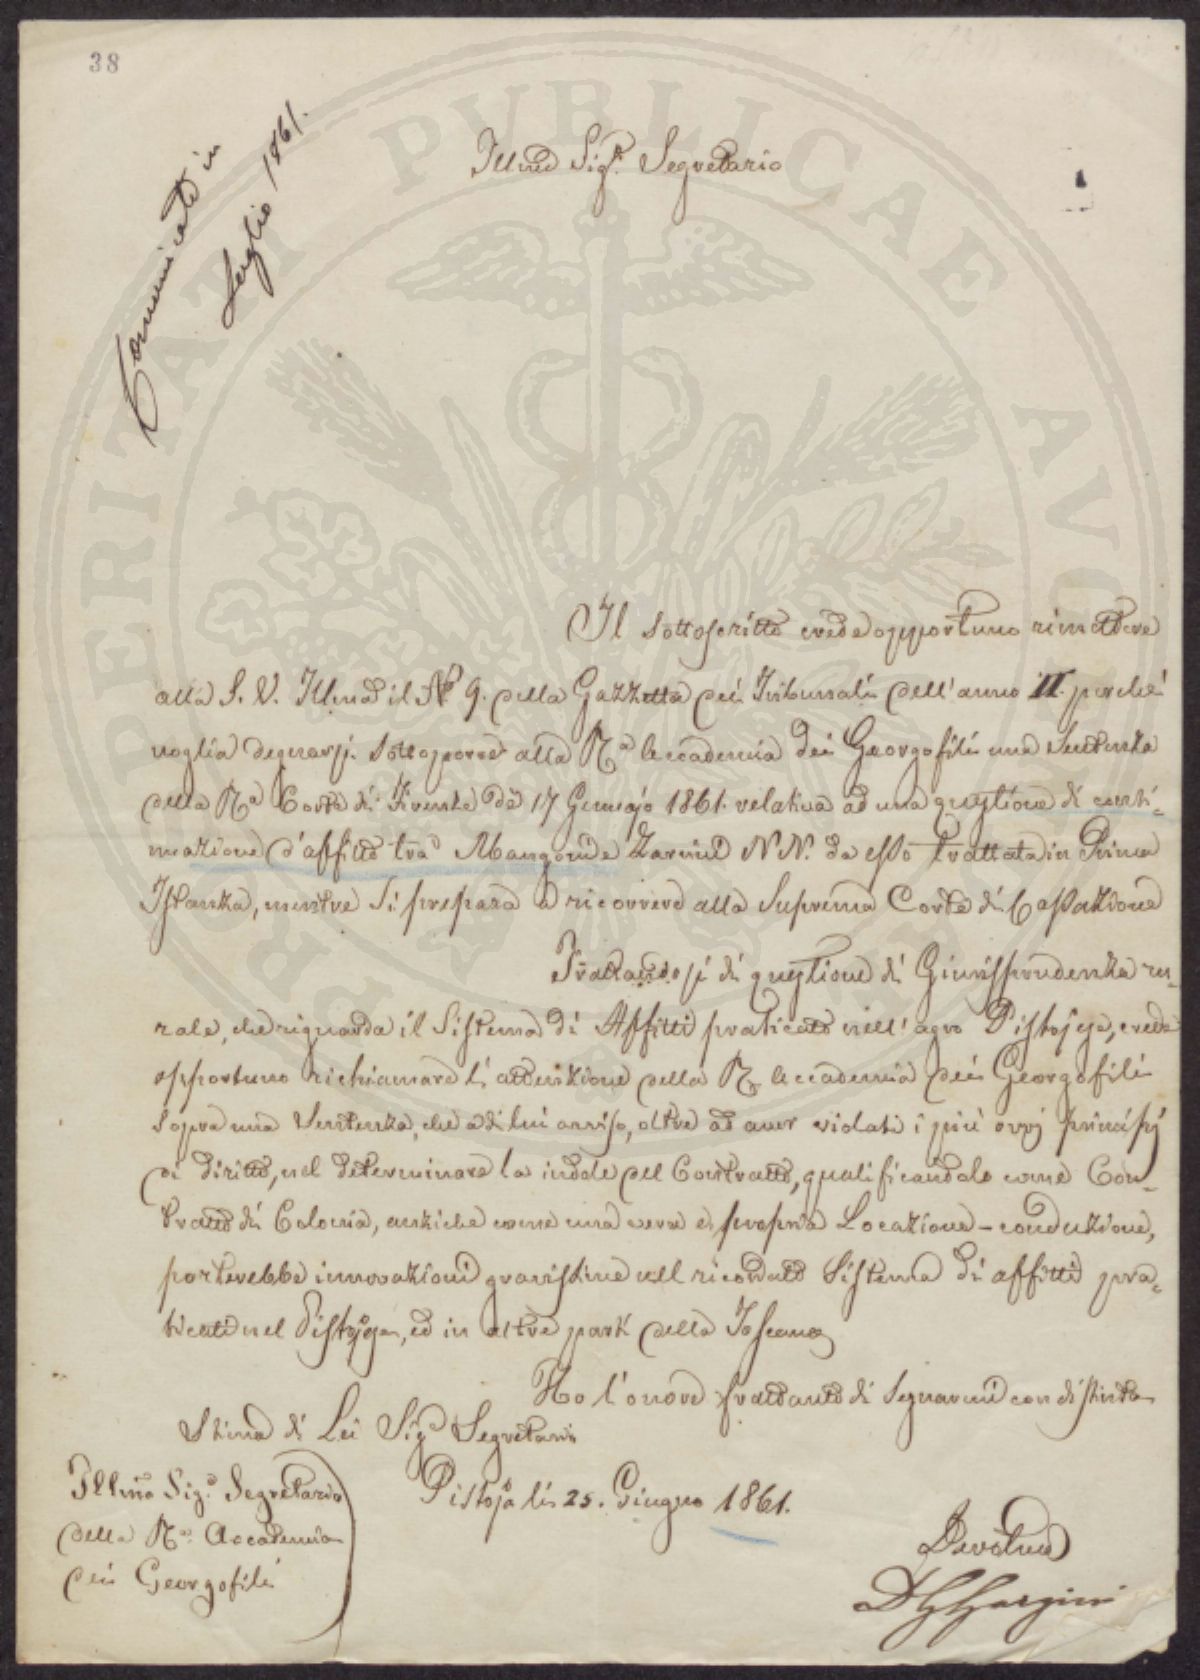 38
Comunicata in
Luglio 1861.
PERITATI PUBLICAE
Illmo Sigr. Segretario
Il sottoscritto crede opportuno rimettere
alla S. V. Illma il No 9. della Gazzetta dei Tribunali dell'anno II. perchè
voglia degnarsi sottoporre alla Ra Accademia dei Georgofili una Sentenza
della Ra Corte di Firenze de 17 Gennajo 1861. relativa ad una questione di conti-
nuazione d'affitto tra Mangoni e Zarini N N. da esso trattata in Prima
Istanza, mentre si prepara a ricorrere alla Suprema Corte di Cassazione
Trattandosi di questione di Giurisprudenza ru-
rale, che riguarda il Sistema di Affitti praticato nell'agro Pistojese, crede
opportuno richiamare l'attenzione della R. Accademia dei Georgofili
sopra una Sentenza, che a di lui avviso, oltre ad aver violati i più ovvj principj
di diritto, nel determinare la indole del Contratto, qualificandolo come Con-
tratto di Colonia, anziche come una vera e propria Locazione-conduzione,
porterebbe innovazioni gravissime nel ricordato Sistema di affitti pra-
ticato nel Pistojese, ed in altre parti della Toscana
Ho l'onore frattanto di segnarmi con distinta
Stima di Lei Sigr Segretario
Pistoja li 25. Giugno 1861.
Illmo Sigr. Segretario
della Ra Accademia
dei Georgofili
Devotmo